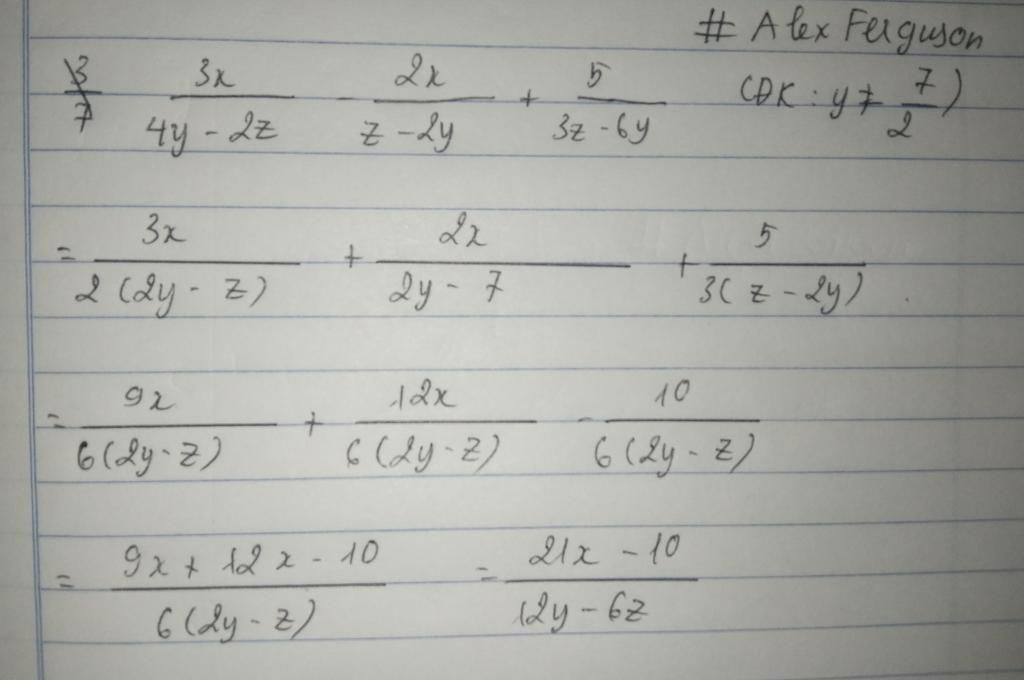 # Alex Ferguson
3/7 3x/(4y - 2z) - 2x/(z - 2y) + 5/(3z - 6y) (DK : y ≠ 7/2)
= 3x/(2(2y - z)) + 2x/(2y - 7) + 5/(3(z - 2y)) .
= 9x/(6(2y - z)) + 12x/(6(2y - z)) - 10/(6(2y - z))
= (9x + 12x - 10)/(6(2y - z)) = (21x - 10)/(12y - 6z)